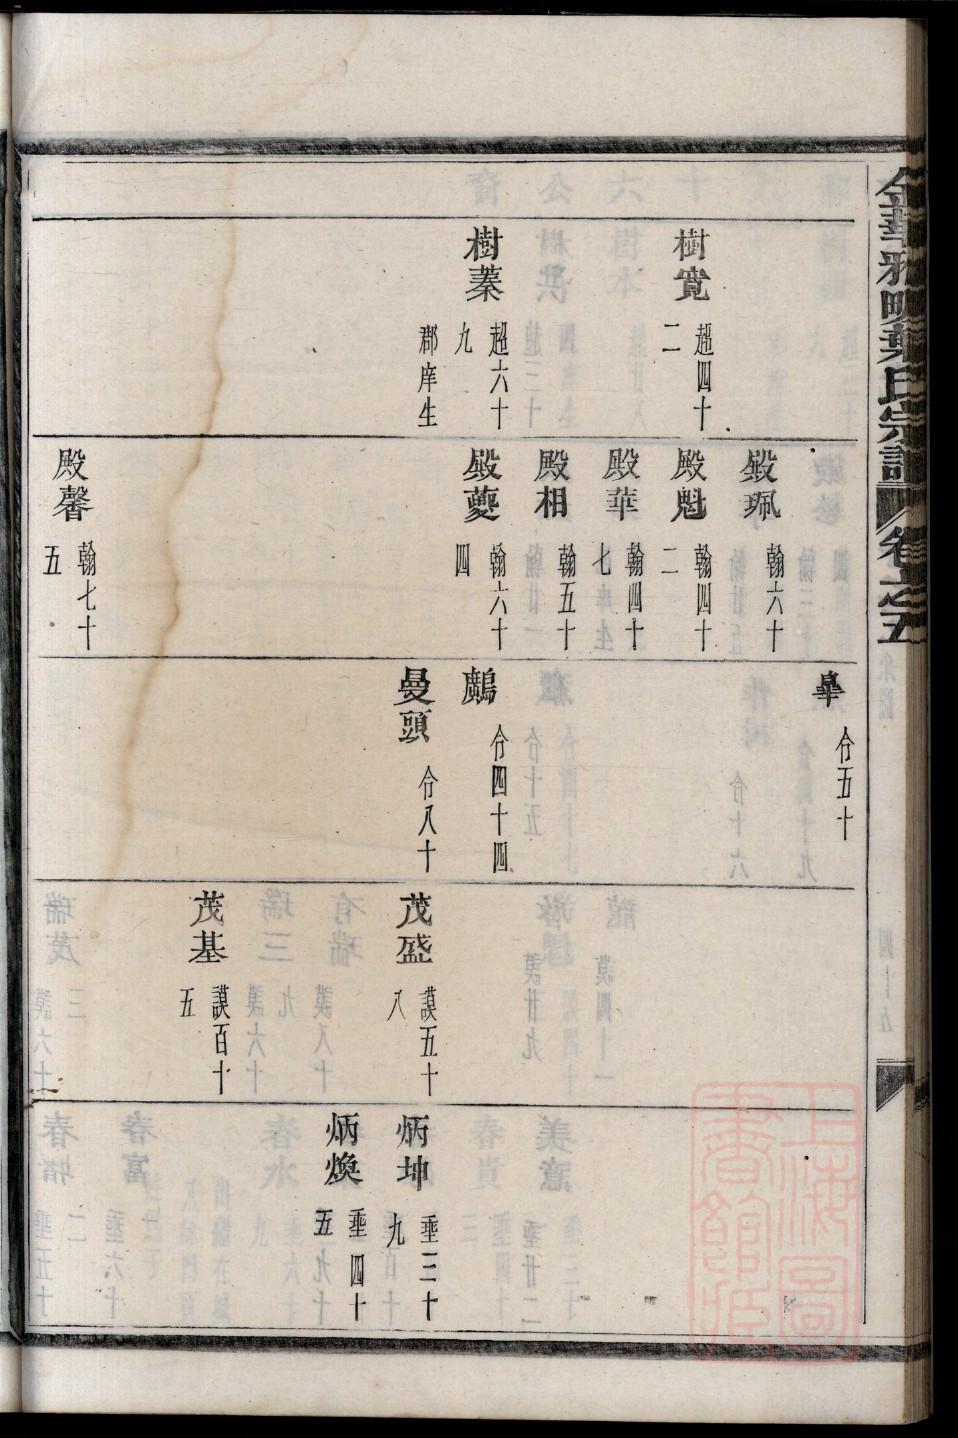 金華雅畈葉氏宗譜 卷之五
樹寬 超四十二
樹蓁 超六十九 郡庠生
殿珮 翰六十
殿魁 翰四十二
殿華 翰四十七
殿相 翰五十
殿夔 翰六十四
殿馨 翰七十五
皞 㑹五十
鷓 㑹四十四
曼頭 㑹八十
茂盛 謨五十八
茂基 謨百十五
炳坤 垂三十九
炳煥 垂四十五
上海圖書館藏